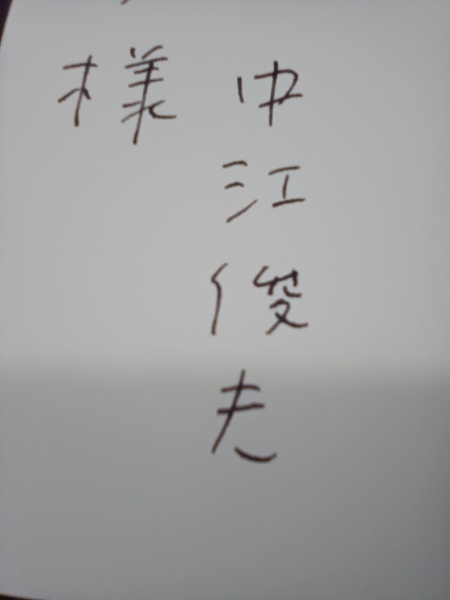 中江俊夫
様